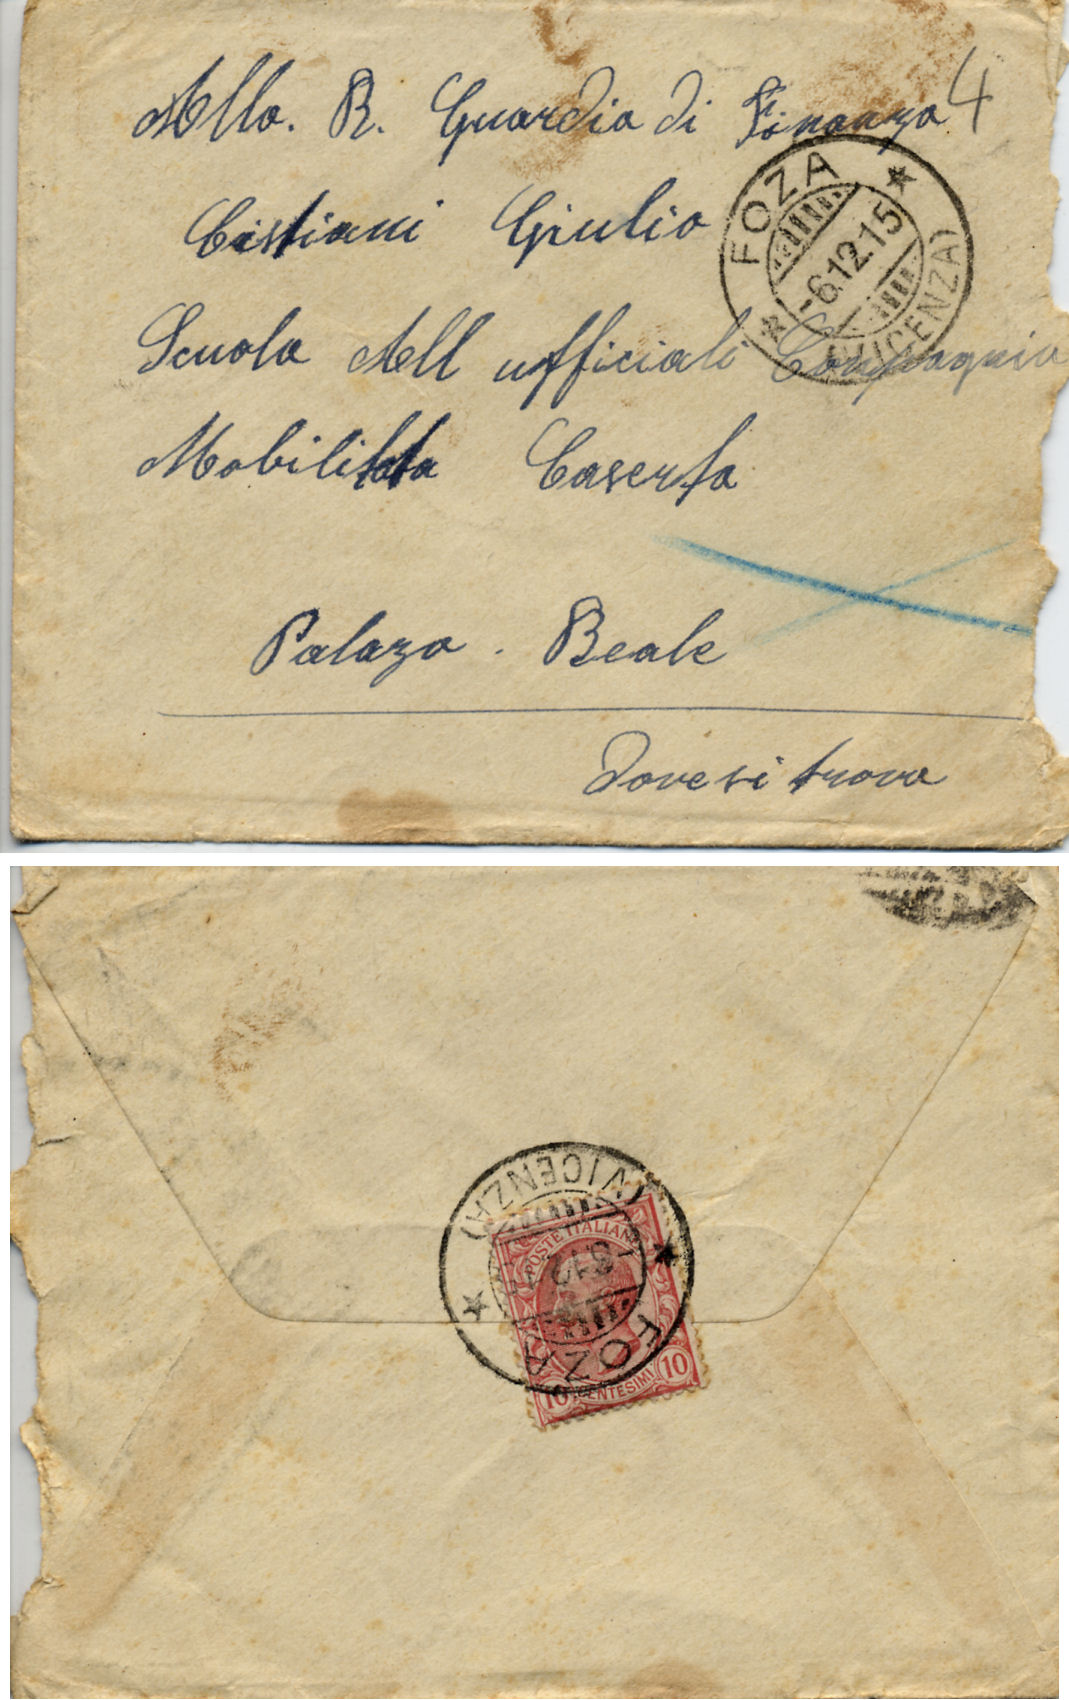 Alla. R. Guardia di Finanza 4
Cistiani Giulio
Scuola All ufficiali Compagnia
Mobilitata Caserta
Palazo. Reale
Dove si trova
FOZA
-6.12.15
(VICENZA)
(VICENZA)
POSTE ITALIANE
FOZA
10 CENTESIMI 10